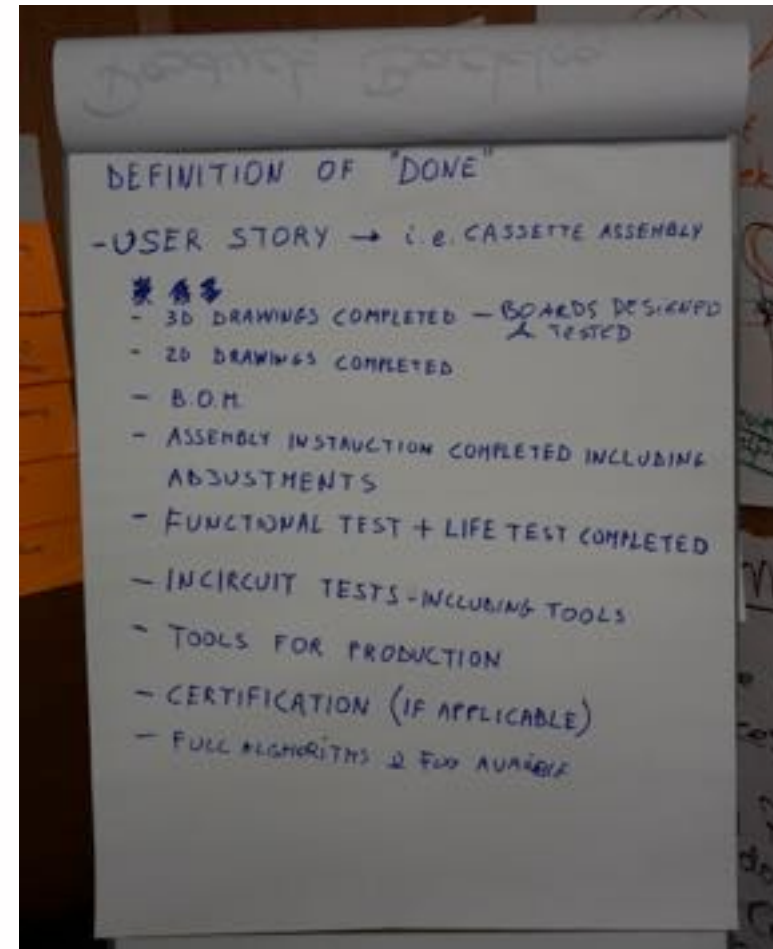 DEFINITION OF "DONE"
- USER STORY → i.e. CASSETTE ASSEMBLY
- 3D DRAWINGS COMPLETED - BOARDS DESIGNED
& TESTED
- 2D DRAWINGS COMPLETED
- B.O.M.
- ASSEMBLY INSTRUCTION COMPLETED INCLUDING
ADJUSTMENTS
- FUNCTIONAL TEST + LIFE TEST COMPLETED
- INCIRCUIT TESTS - INCLUDING TOOLS
- TOOLS FOR PRODUCTION
- CERTIFICATION (IF APPLICABLE)
- FULL ALGHORITHS &